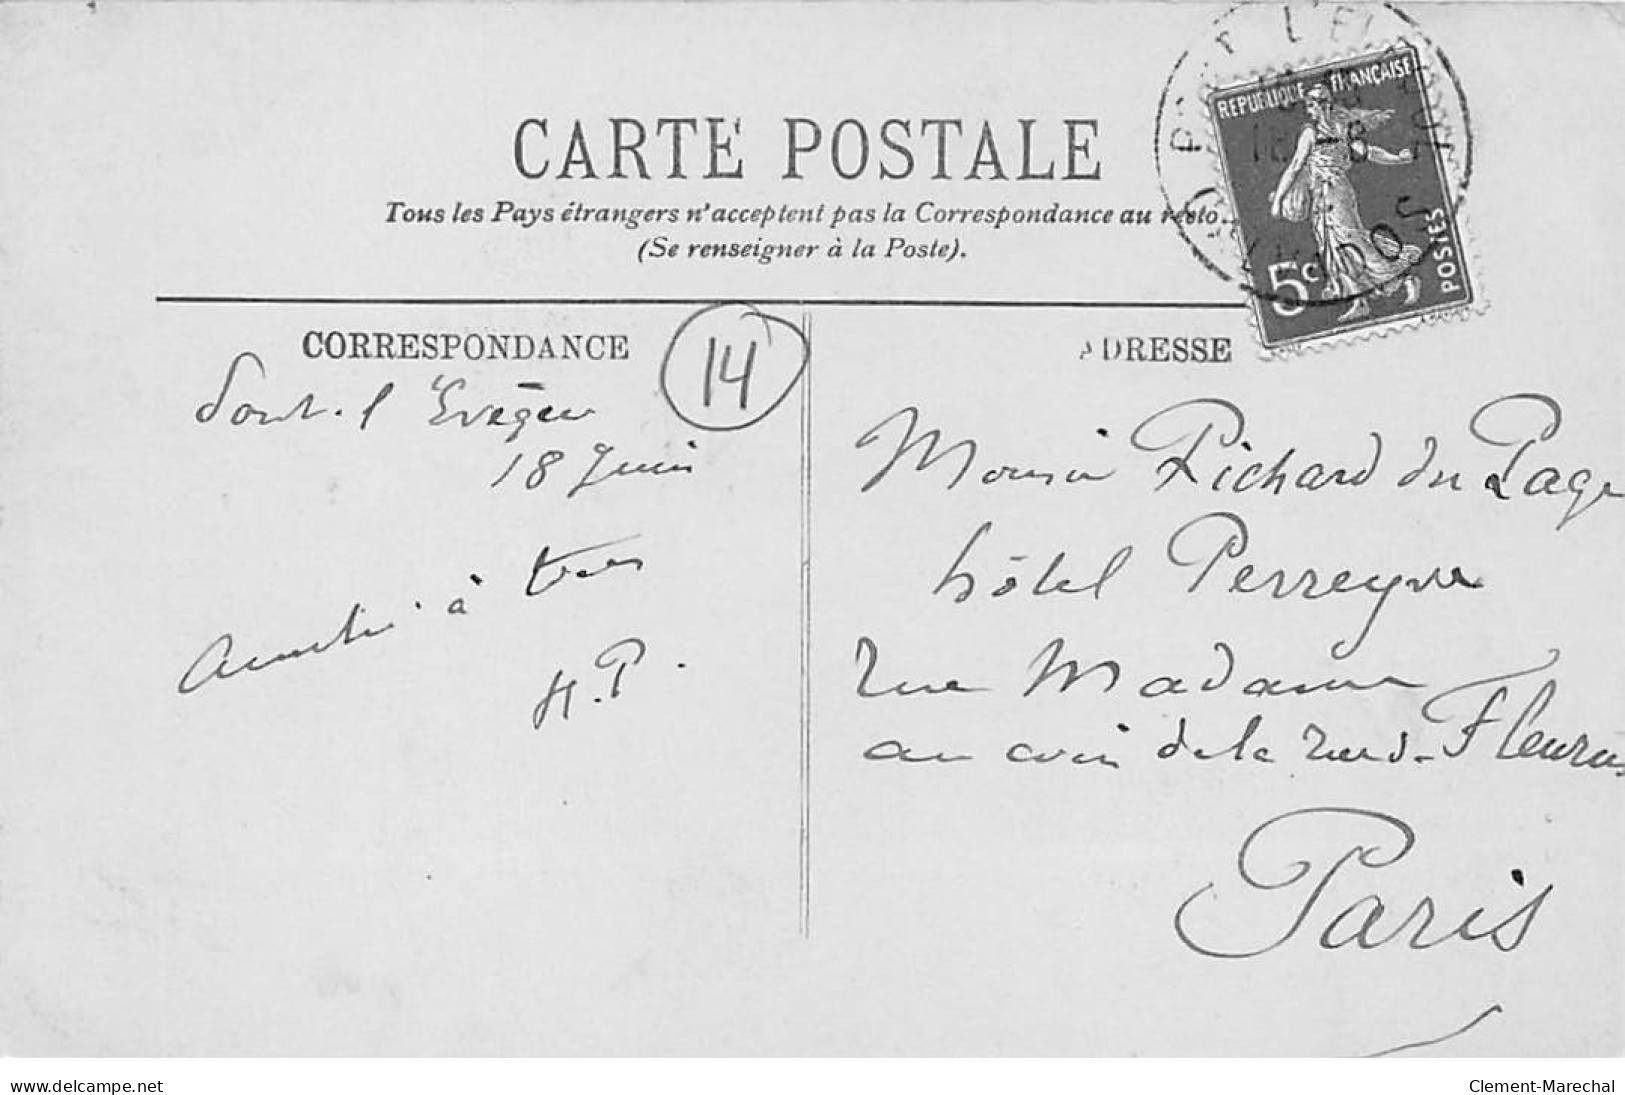 CARTE POSTALE
Tous les Pays étrangers n'acceptent pas la Correspondance au
(Se renseigner à la Poste).
REPUBLIQUE FRANÇAISE
5c POSTES
CORRESPONDANCE
14
Pont-l'Evêque
18 Juin
à tous
H.P.
ADRESSE
Richard du Page
hôtel Perreyve
rue Madame
au coin de la rue de Fleurus
Paris
www.delcampe.net
Clement-Marechal